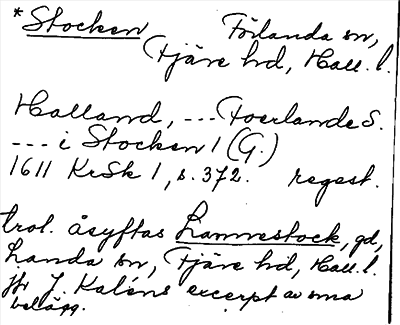 * Stocken Förlanda sn,
Fjäre hd, Hall. l.
Halland, --- Foerlande S.
--- i Stocken 1 (G.)
1611 KrSk 1, s. 372. regest.
trol. åsyftas Lamnestock, gd,
Landa sn, Fjäre hd, Hall. l.
jfr J. Kaléns excerpt av sma
belägg.